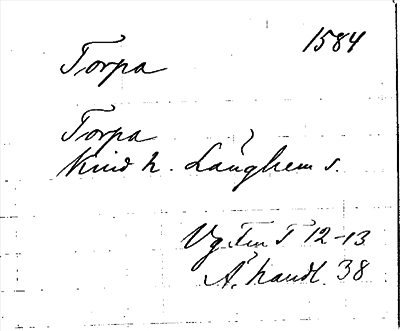 1584
Torpa
Torpa
Kind h. Långhem s.
Vg Fru T 12-13
Å. handl. 38